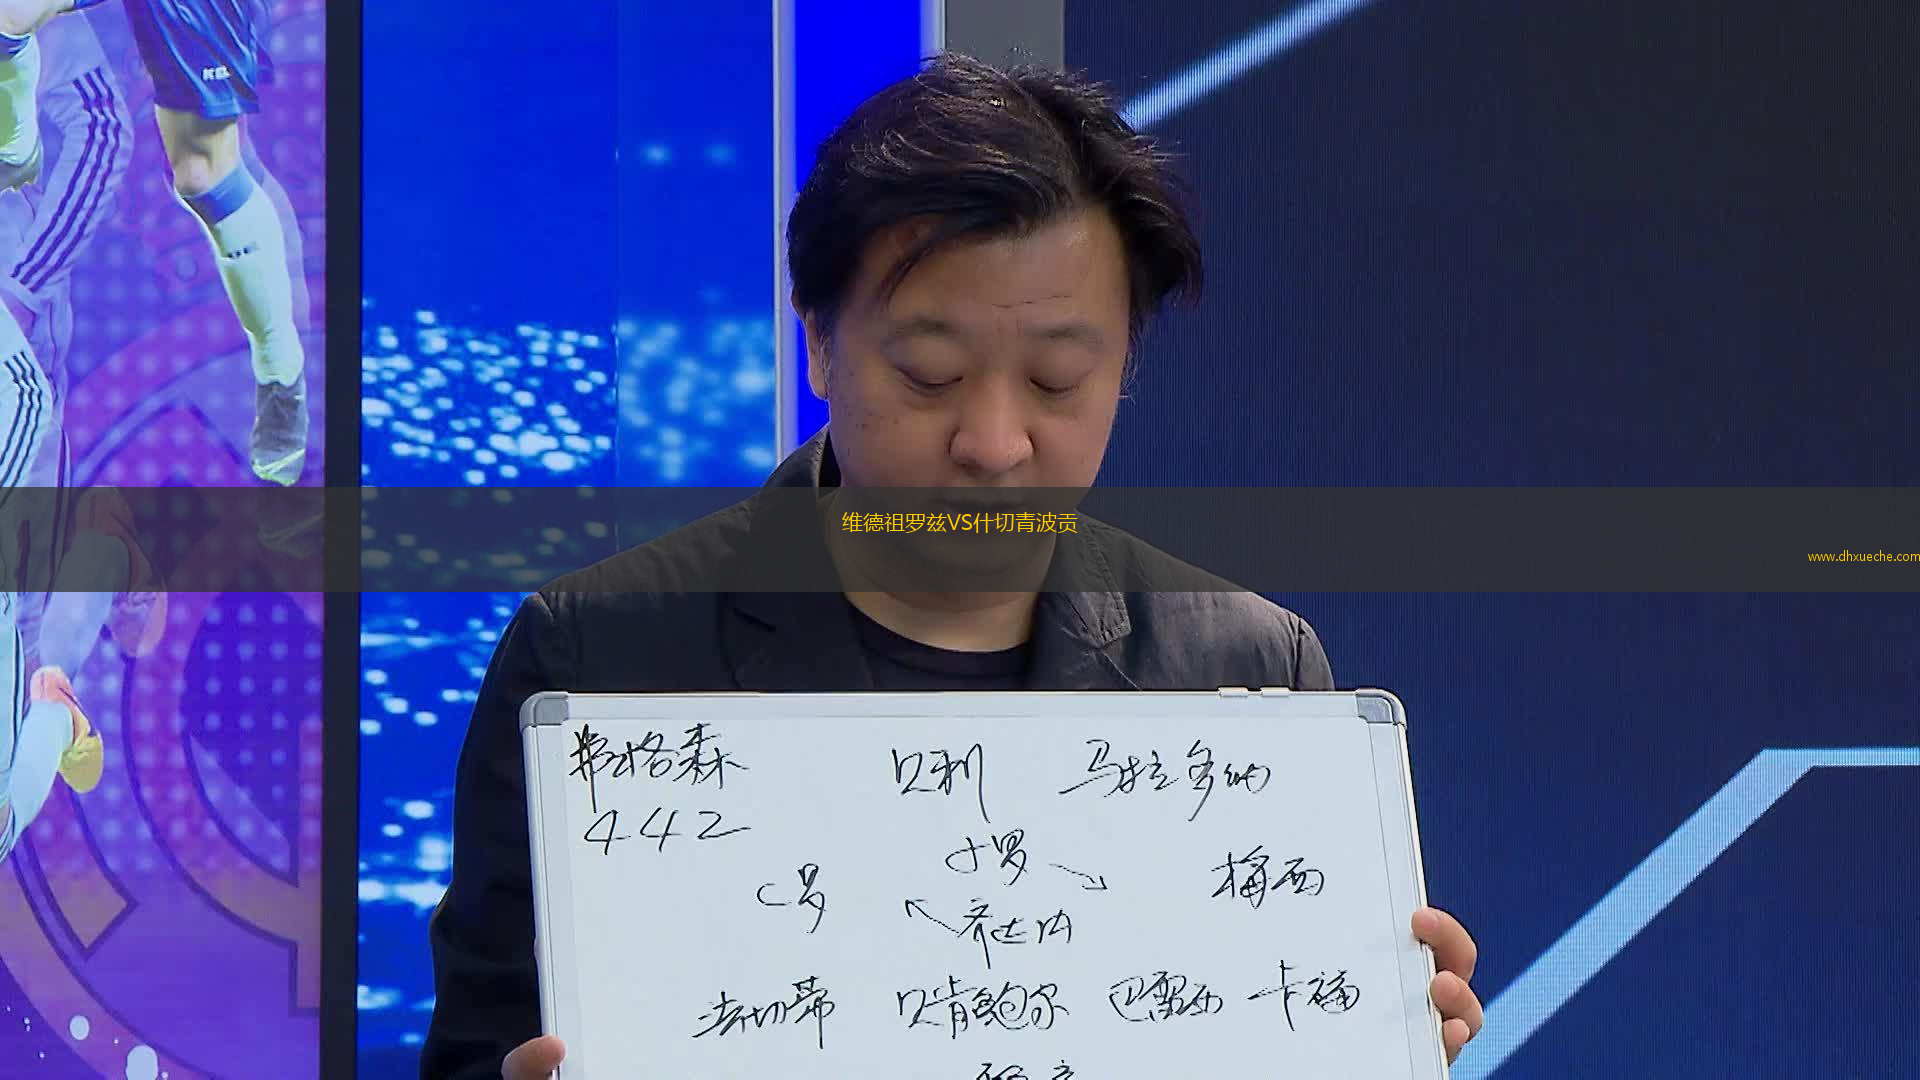 KEL
维德祖罗兹VS什切青波贡
www.dhxueche.com
弗格森 贝利 马拉多纳
442
小罗
C罗 梅西
齐达内
法切蒂 贝肯鲍尔 巴雷西 卡福